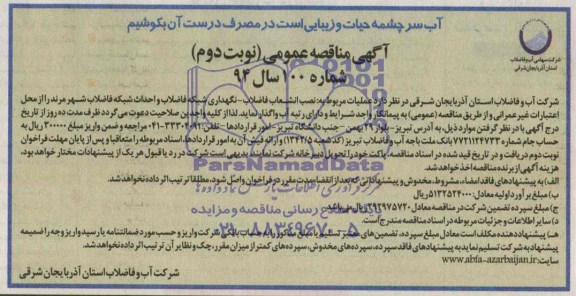 آب سر چشمه حیات و زیبایی است در مصرف درست آن بکوشیم
آگهی مناقصه عمومی (نوبت دوم)
شماره ۱۰۰ سال ۹۴
شرکت سهامی آب و فاضلاب
استان آذربایجان شرقی
شرکت آب و فاضلاب استان آذربایجان شرقی در نظر دارد عملیات مربوط به: نصب انشعاب فاضلاب - نگهداری شبکه فاضلاب و احداث شبکه فاضلاب شهر مرند را از محل
اعتبارات غیر عمرانی و از طریق مناقصه (عمومی) به پیمانکار واجد شرایط و دارای رتبه آب واگذار نماید. لذا از کلیه واجدین صلاحیت دعوت می گردد ظرف مدت ده روز از تاریخ
درج آگهی با در نظر گرفتن موارد ذیل، به آدرس تبریز - بلوار ۲۹ بهمن - جنب دانشگاه تبریز - امور قراردادها - تلفن مراجعه و ضمن واریز مبلغ ۳۰۰۰۰۰ ریال به
حساب جام شماره بانک ملت باجه آب و فاضلاب تبریز (کد شعبه ۱۳۴۲/۵) و ارائه فیش آن به امور قراردادها، اسناد مربوطه را متعاقبا و از پایان مهلت فراخوان
نوبت دوم دریافت و در تاریخ قید شده در اسناد مناقصه، پاکت خود را تحویل دبیرخانه شرکت نمایند. بدیهی است شرکت در رد یا قبول هر یک از پیشنهادات مختار خواهد بود.
هزینه آگهی از برنده مناقصه اخذ خواهد شد.
الف) به پیشنهادهای فاقد امضاء، مشروط، مخدوش و پیشنهاداتی که بعد از انقضاء مدت مقرر در فراخوان واصل شود، مطلقا ترتیب اثر داده نخواهد شد.
ب) مبلغ برآورد اولیه معادل: ۵۱۳۲۵۲۴۰۰۰ ریال.
ج) مبلغ سپرده تضمین شرکت در مناقصه معادل: ریال می باشد.
د) سایر اطلاعات و جزئیات مربوطه در اسناد مناقصه مندرج است.
هـ) پیشنهاد دهنده مکلف است معادل مبلغ سپرده، تضمین های معتبر تسلیم یا مبلغ مذکور را به حساب بانکی شرکت واریز و حسب مورد ضمانتنامه یا رسید واریز وجه را ضمیمه
پیشنهاد به شرکت تسلیم نماید به پیشنهادهای فاقد سپرده، سپرده های مخدوش، سپرده های کمتر از میزان مقرر، چک و نظایر آن ترتیب اثر داده نخواهد شد.
سایت: www.abfa-azarbaijan.ir
شرکت آب و فاضلاب استان آذربایجان شرقی
ParsNamadData
۰۲۱-۸۸۳۴۹۶۷۰-۵